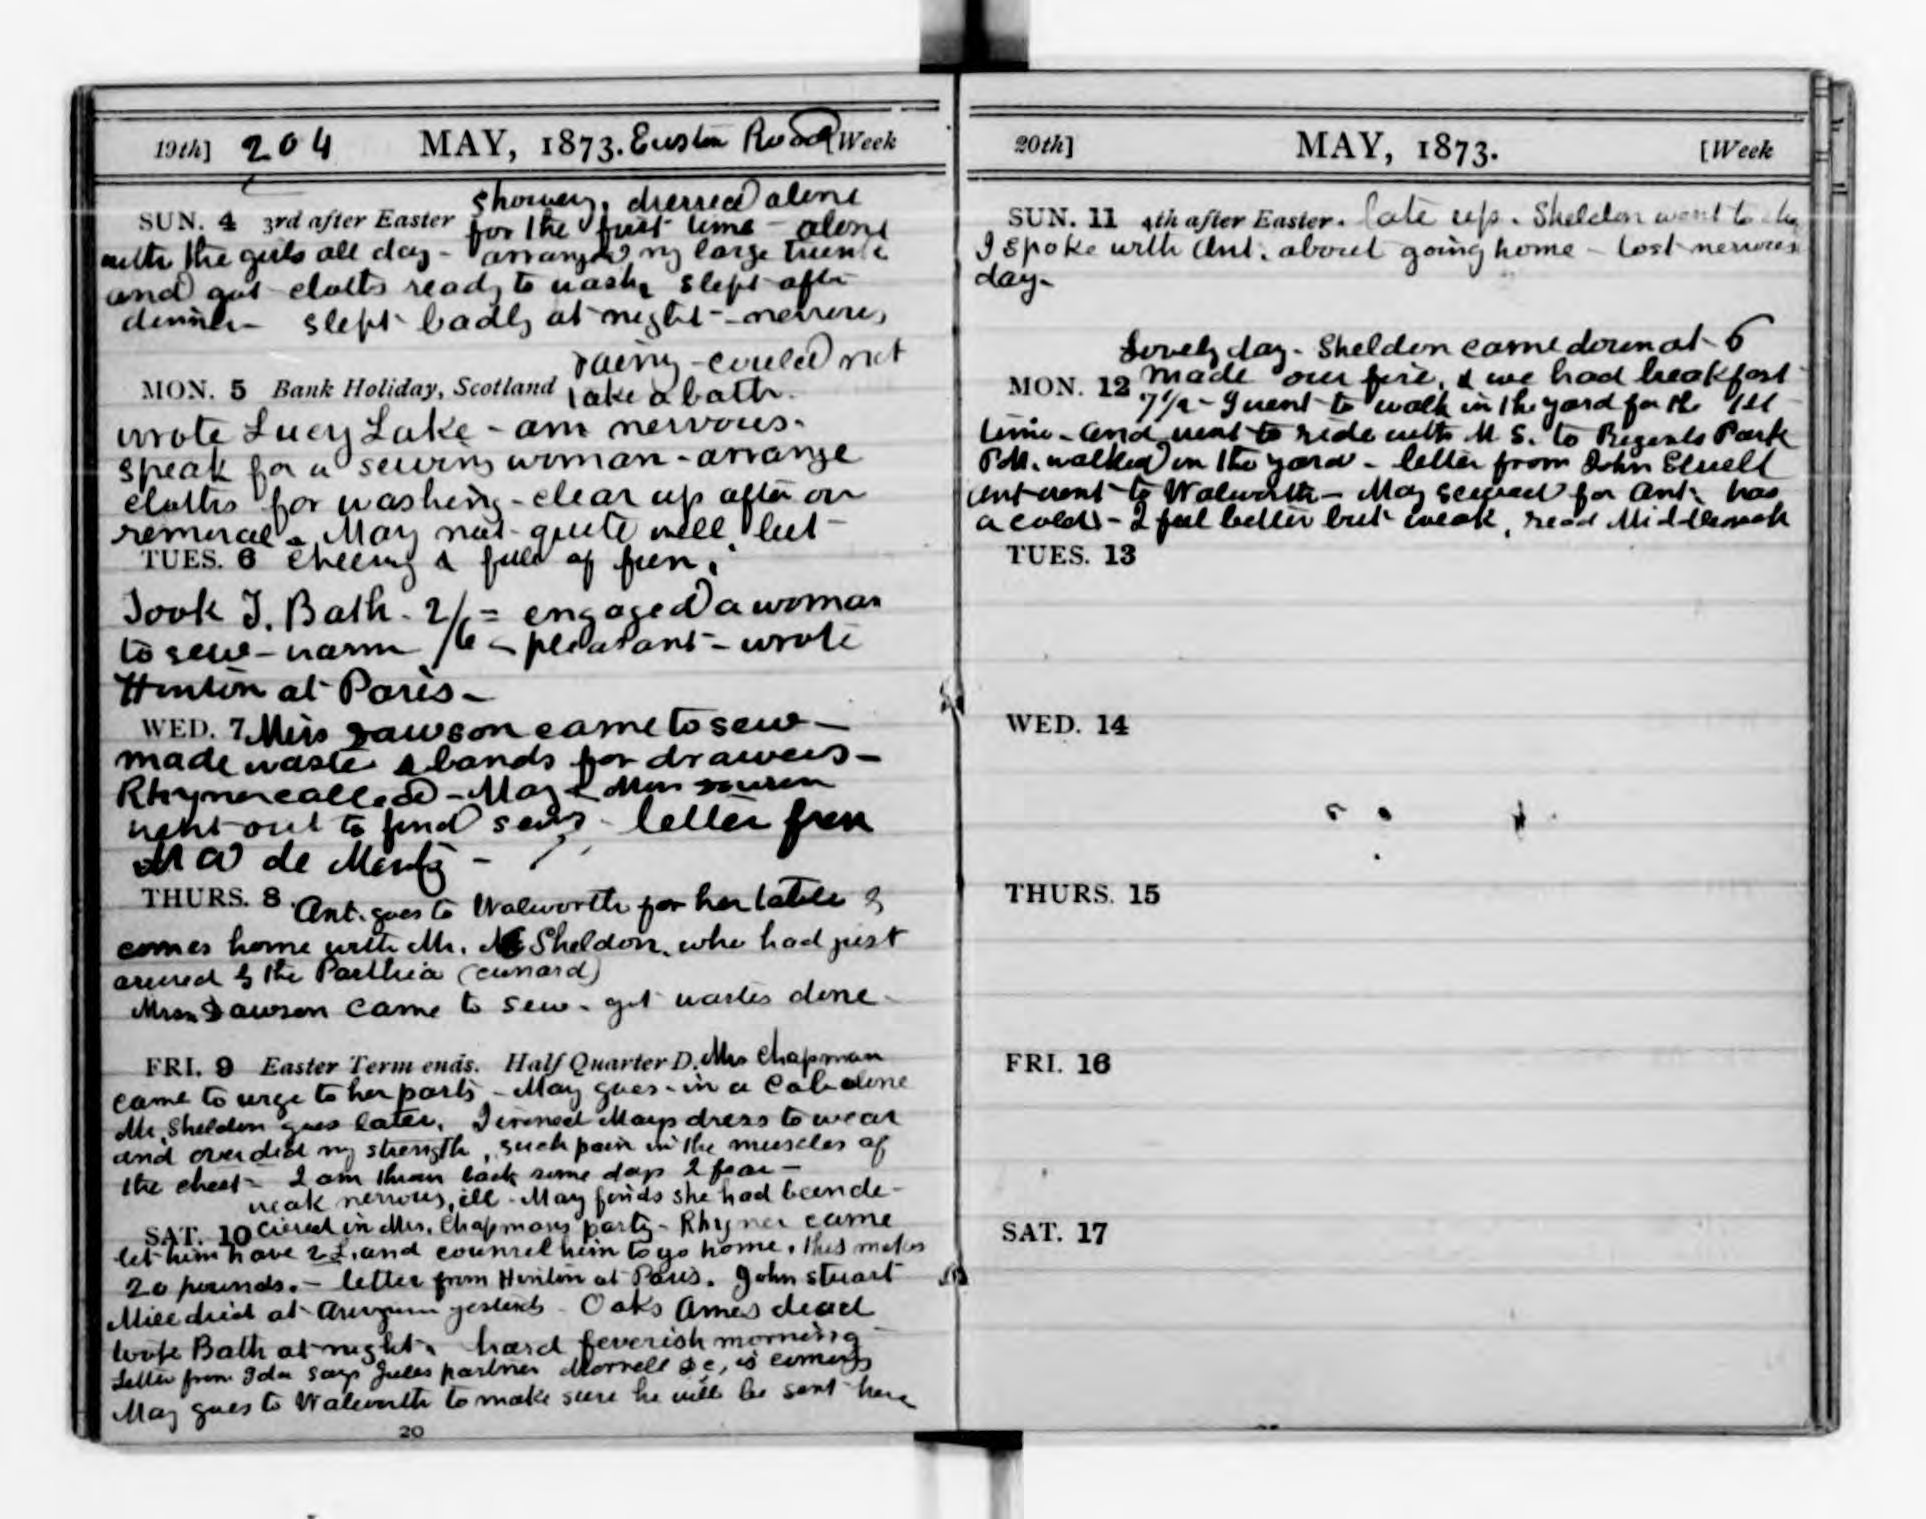 19th] 204 MAY, 1873. Euston Road [Week
showery, dressed alone
SUN. 4 3rd after Easter for the first time – alone
with the girls all day – arranged my large trunk
and got cloths ready to wash, slept after
dinner – slept badly at night – nervous,
rainy – could not
MON. 5 Bank Holiday, Scotland take a bath.
wrote Lucy Lake – am nervous.
speak for a sewing woman – arrange
cloths for washing – clear up after our
removal. May not quite well but
TUES. 6 cheery & full of fun.
Took T. Bath. 2/6 = engaged a woman
to sew – warm – pleasant – wrote
Hinton at Paris –
WED. 7 Miss Dawson came to sew –
made waste & bands for drawers –
Rhyner called – May & Miss
went out to find – letter from
M A de
THURS. 8 Ant. goes to Walworth for her table &
comes home with Mr. Sheldon, who had just
arrived by the Parthia (Cunard)
Miss Dawson came to sew – got wastes done –
FRI. 9 Easter Term ends. Half Quarter D. Mrs Chapman
came to urge to her party – May goes – in a Cab alone
Mr. Sheldon goes later. I ironed Mays dress to wear
and overdid my strength, such pain in the muscles of
the chest – I am thrown back some days I fear –
weak nervous, ill – May finds she had been de-
SAT. 10 cieved in Mrs. Chapmans party – Rhyner came
let him have 2£. and counsel him to go home. this makes
20 pounds. – letter from Hinton at Paris. John Stuart
Mill died at yesterday – Oaks Ames dead
took Bath at night. hard feverish morning –
Letter from Ida says Jules partner Morrell &c, is coming
May goes to Walworth to make sure he will be sent here
20
20th] MAY, 1873. [Week
SUN. 11 4th after Easter. late up. Sheldon went to
I spoke with Ant. about going home – lost nervous
day –
Lovely day. Sheldon came down at 6
MON. 12 made our fire, & we had breakfast
7½ – I went to walk in the yard for the 1st
time – and went to ride with M S. to Regents Park
P.M. walked in the yard – letter from John
Ant went to Walworth – May sewed for Ant. has
a cold – I feel better but weak, read Middlemach
TUES. 13
WED. 14
THURS. 15
FRI. 16
SAT. 17